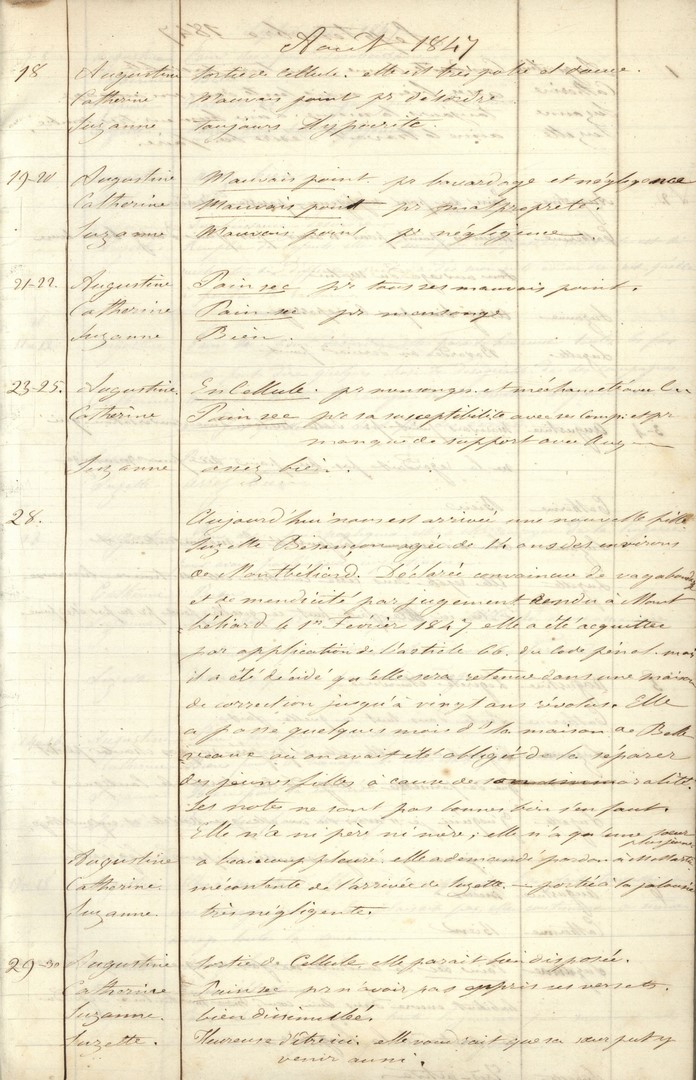 Aout 1847
18 Augustine sortie de Cellule. elle est très polie et douce.
Catherine Mauvais point pr désordre
Suzanne toujours hypocrite.
19-20 Augustine Mauvais point. pr bavardage et négligence
Catherine Mauvais point pr malpropreté.
Suzanne Mauvais point pr négligence
21-22. Augustine Pain sec pr tous ses mauvais point.
Catherine Pain sec pr mensonge
Suzanne Bien.
23-25. Augustine. En Cellule. pr mensonges. et méchanceté avec
Catherine Pain sec pr sa susceptibilité avec ses comp. et pr
manque de support avec Aug
Suzanne assez bien.
28. Aujourd'hui nous est arrivée une nouvelle fille
Suzette Besançon agée de 14 ans des environs
de Montbéliard. Déclarée convaincue de vagabondage
et de mendicité par jugement rendu à Mont
béliard le 1er Février 1847 elle a été acquittée
par application de l'article 66. du Code pénal. mais
il a été décidé qu'elle sera retenue dans une maison
de correction jusqu'à vingt ans révolus. Elle
a passé quelques mois ds la maison de Belle
vaux où on avait été obligé de la séparer
des jeunes filles à cause de son immoralité.
Ses note ne sont pas bonnes bien s'en faut.
Elle n'a ni père ni mère; elle n'a qu'une soeur
plus jeune
Augustine a beaucoup pleuré. elle a demandé pardon à
Catherine. mécontente de l'arrivée de Suzette. – portée à la jalousie
Suzanne très négligente.
29-30 Augustine sortie de Cellule. elle parait bien disposée.
Catherine Pain sec pr n'avoir pas appris ses versets.
Suzanne. bien dissimulée.
Suzette. Heureuse d'être ici. elle voudrait que sa soeur put y
venir aussi.